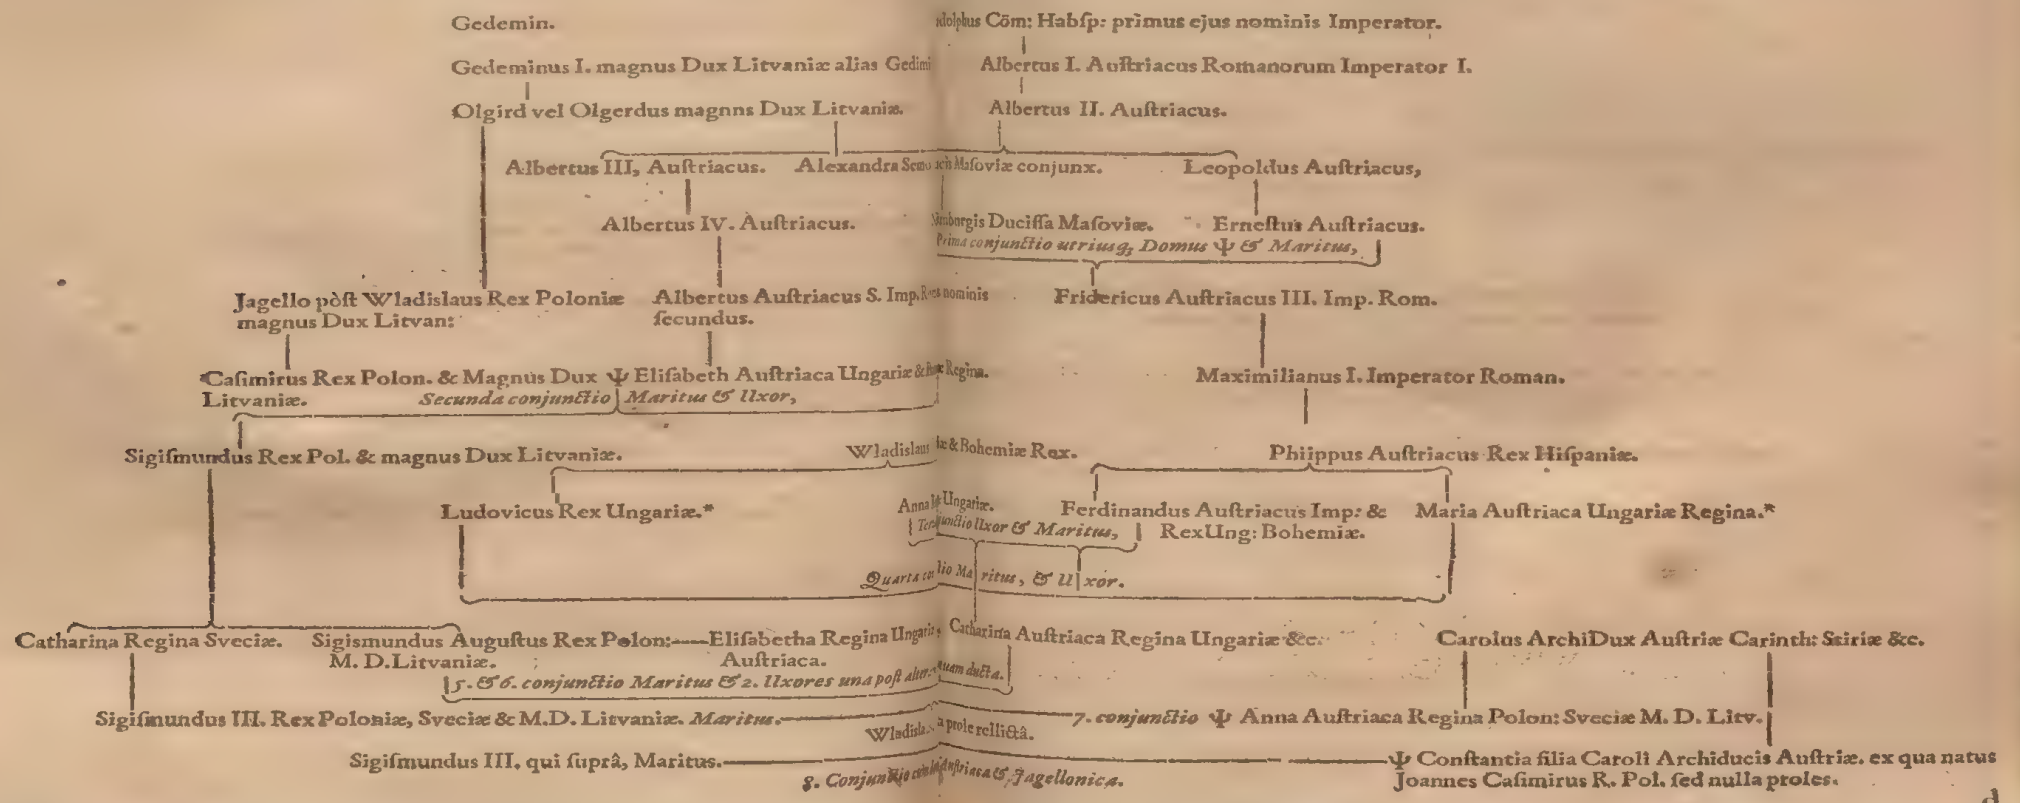 Gedemin.
Cōm: Habſp: primus ejus nominis Imperator.
Gedeminus I. magnus Dux Litvaniæ alias
Albertus I. Auſtriacus Romanorum Imperator I.
Olgird vel Olgerdus magnns Dux Litvaniæ.
Albertus II. Auſtriacus.
Albertus III, Auſtriacus.
Alexandra Maſoviæ conjunx.
Leopoldus Auſtriacus,
Albertus IV. Auſtriacus.
Duciſſa Maſoviæ.
Erneſtus Auſtriacus.
Prima conjunctio utriusq; Domus Ψ & Maritus,
Jagello pòſt Wladislaus Rex Poloniæ
magnus Dux Litvan:
Albertus Auſtriacus S. Imp. nominis
ſecundus.
Fridericus Auſtriacus III. Imp. Rom.
Caſimirus Rex Polon. & Magnus Dux Ψ Eliſabeth Auſtriaca Ungariæ & Regina.
Litvaniæ.
Secunda conjunctio Maritus & Uxor,
Maximilianus I. Imperator Roman.
Sigiſmundus Rex Pol. & magnus Dux Litvaniæ.
Wladislaus & Bohemiæ Rex.
Phiippus Auſtriacus Rex Hiſpaniæ.
Ludovicus Rex Ungariæ.*
Anna Ungariæ.
Ferdinandus Auſtriacus Imp: &
Rex Ung: Bohemiæ.
Maria Auſtriaca Ungariæ Regina.*
Uxor & Maritus,
Quarta Maritus, & Uxor.
Catharina Regina Sveciæ.
Sigismundus Auguſtus Rex Polon:
M. D. Litvaniæ.
Eliſabetha Regina Ungariæ
Auſtriaca.
Catharina Auſtriaca Regina Ungariæ &c.
Carolus ArchiDux Auſtriæ Carinth: Stiriæ &c.
5. & 6. conjunctio Maritus & 2. Uxores una poſt ducta.
Sigiſmundus III. Rex Poloniæ, Sveciæ & M.D. Litvaniæ. Maritus.
7. conjunctio Ψ Anna Auſtriaca Regina Polon: Sveciæ M. D. Litv.
prole rellictâ.
Sigiſmundus III. qui ſuprâ, Maritus.
Ψ Conſtantia filia Caroli Archiducis Auſtriæ. ex qua natus
Joannes Caſimirus R. Pol. ſed nulla proles.
8. & Jagellonica.
d